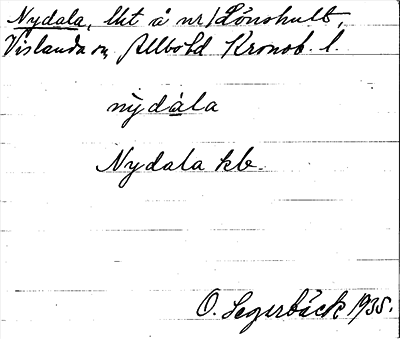 Nydala, lht å nr 1 Lönshult,
Vislanda sn, Allbo hd Kronob. l.
nỳdàla
Nydala kb.
O. Segerbäck 1935.